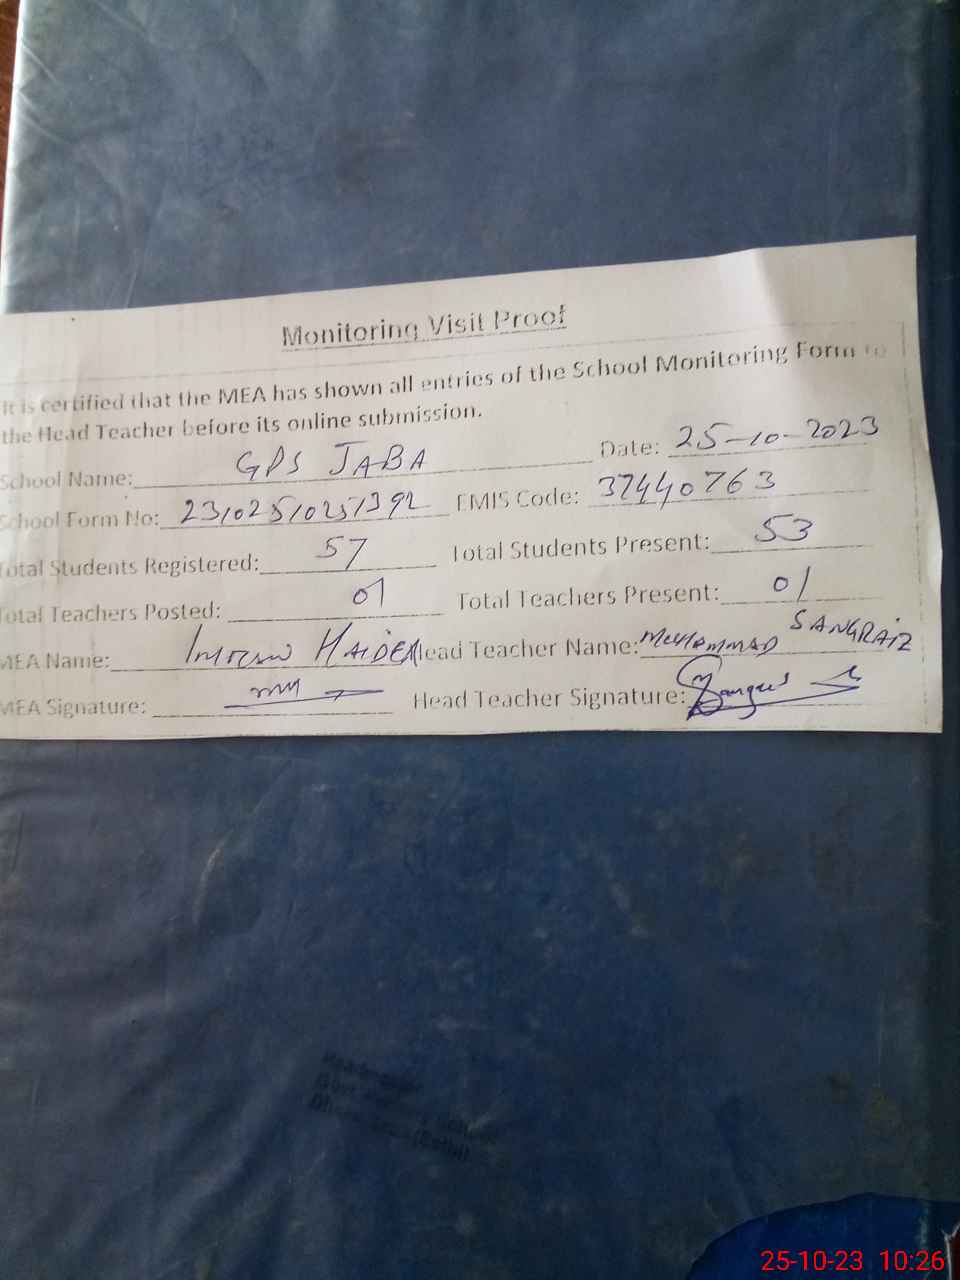 Monitoring Visit Proof
It is certified that the MEA has shown all entries of the School Monitoring Form to
the Head Teacher before its online submission.
School Name: GPS JABA Date: 25-10-2023
School Form No: 23102510251392 EMIS Code: 37440763
Total Students Registered: 57 Total Students Present: 53
Total Teachers Posted: 01 Total Teachers Present: 01
MEA Name: Imran HAIDER Head Teacher Name: MUHAMMAD SANGRAIZ
MEA Signature: Head Teacher Signature:
25-10-23 10:26